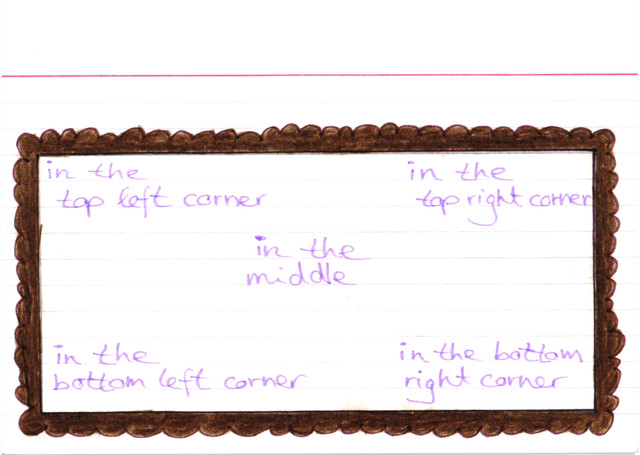 in the
top left corner
in the
top right corner
in the
middle
in the
bottom left corner
in the bottom
right corner